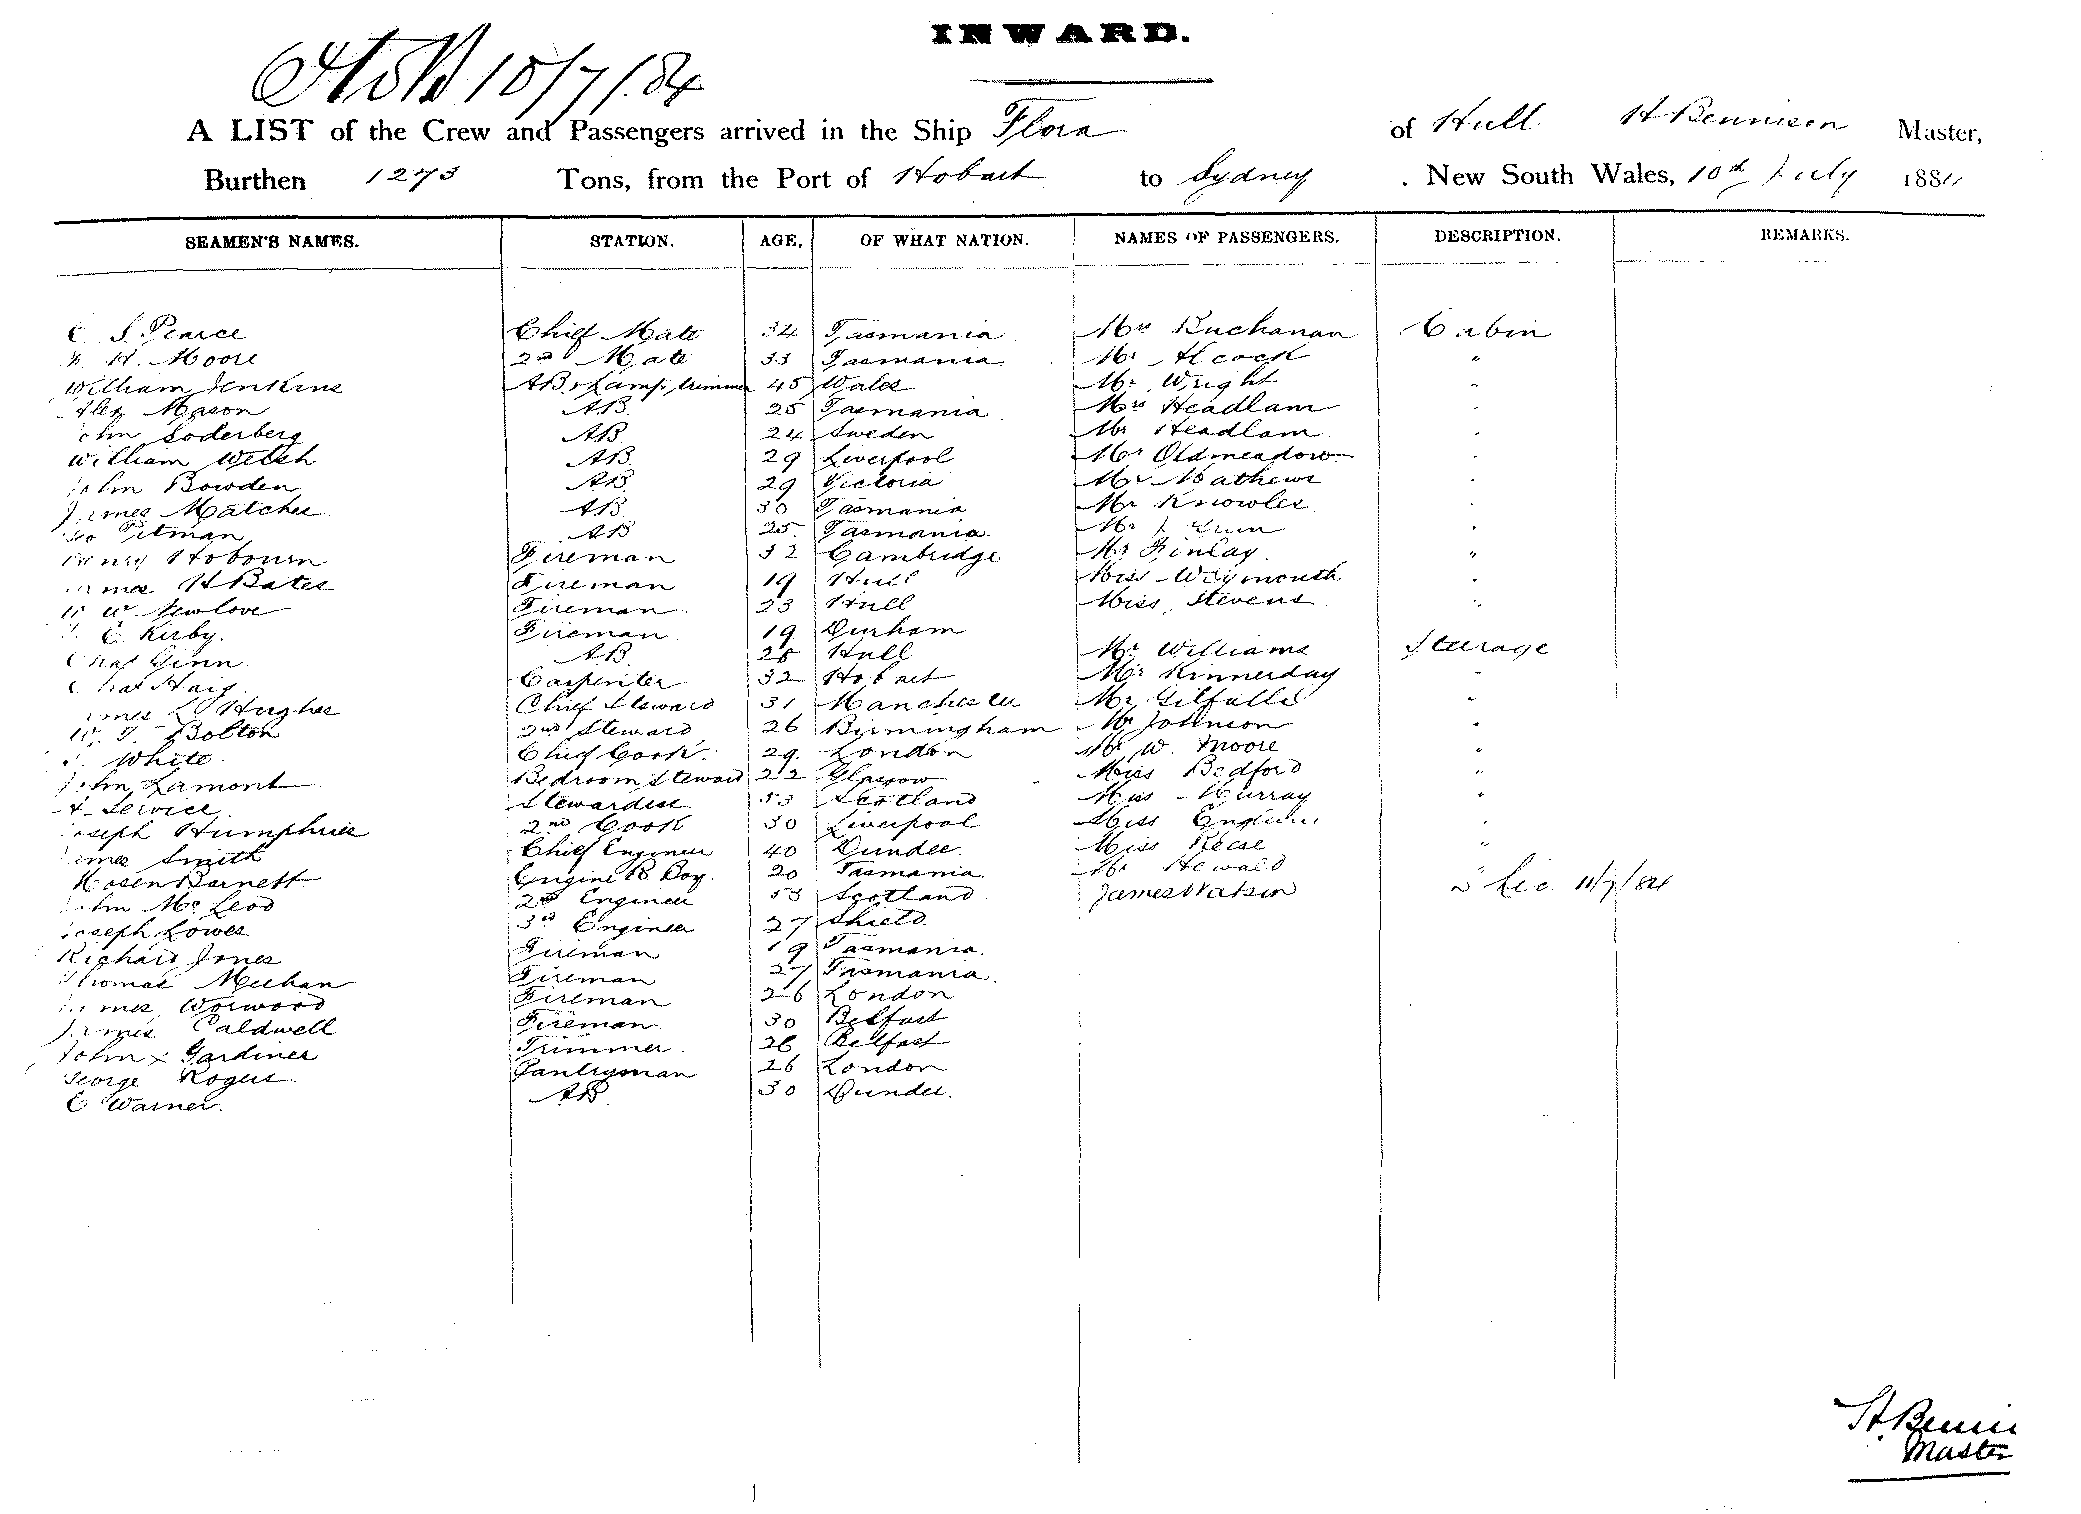 INWARD.
10/7/84
A LIST of the Crew and Passengers arrived in the Ship Flora of Hull H Bennison Master,
Burthen 1273 Tons, from the Port of Hobart to Sydney . New South Wales, 10th July 1884
SEAMEN'S NAMES. STATION. AGE. OF WHAT NATION. NAMES OF PASSENGERS. DESCRIPTION. REMARKS.
C S. Pearce Chief Mate 34 Tasmania Mrs Buchanan Cabin
H. Moore 2nd Mate 33 Tasmania Mr Alcock "
William Jenkins AB & Lamp trimmer 45 Wales Mr Wright "
Alex Mason AB 25 Tasmania Mrs Headlam "
John Soderberg AB 24 Sweden Mr Headlam "
William Welsh AB 29 Liverpool Mr Oldmeadow "
John Bowden AB 29 Victoria Mr Mathews "
James Matcher AB 30 Tasmania Mr Knowles "
Geo Pitman AB 25 Tasmania Mr J.
Henry Hobourn Fireman 32 Cambridge Mr Finlay "
James H Bates Fireman 19 Hull Miss Weymouth "
W. W. Newlove Fireman 23 Hull Miss Stevens "
C. Kirby. Fireman 19 Durham
Chas Ginn AB 25 Hull Mr Williams Steurage
Chas Haig Carpenter 32 Hobart Mr Kinnerday "
James Hughes Chief Steward 31 Manchester Mr Gilfalls "
W. T. Bolton 2nd Steward 26 Birmingham Mr Johnson "
White Chief Cook 29 London Mr W. Moore "
John Lamont Bedroom Steward 22 Glasgow Miss Bedford "
A Service Stewardess 53 Scotland Miss Murray "
Joseph Humphries 2nd Cook 30 Liverpool Miss English "
James Smith Chief Engineer 40 Dundee Miss Reese "
Mosen Barnett Engine Boy 20 Tasmania Mr Hewald
John McLeod 2nd Engineer 53 Scotland James Watson 11/7/84
Joseph Lowes 3rd Engineer 27 Shield
Richard Jones Fireman 19 Tasmania
Thomas Meehan Fireman 27 Tasmania
James Worwood Fireman 26 London
James Caldwell Fireman 30 Belfast
John Gardiner Trimmer 26 Belfast
George Rogers Pantryman 26 London
E Warner. AB 30 Dundee.
H. Benni
Master